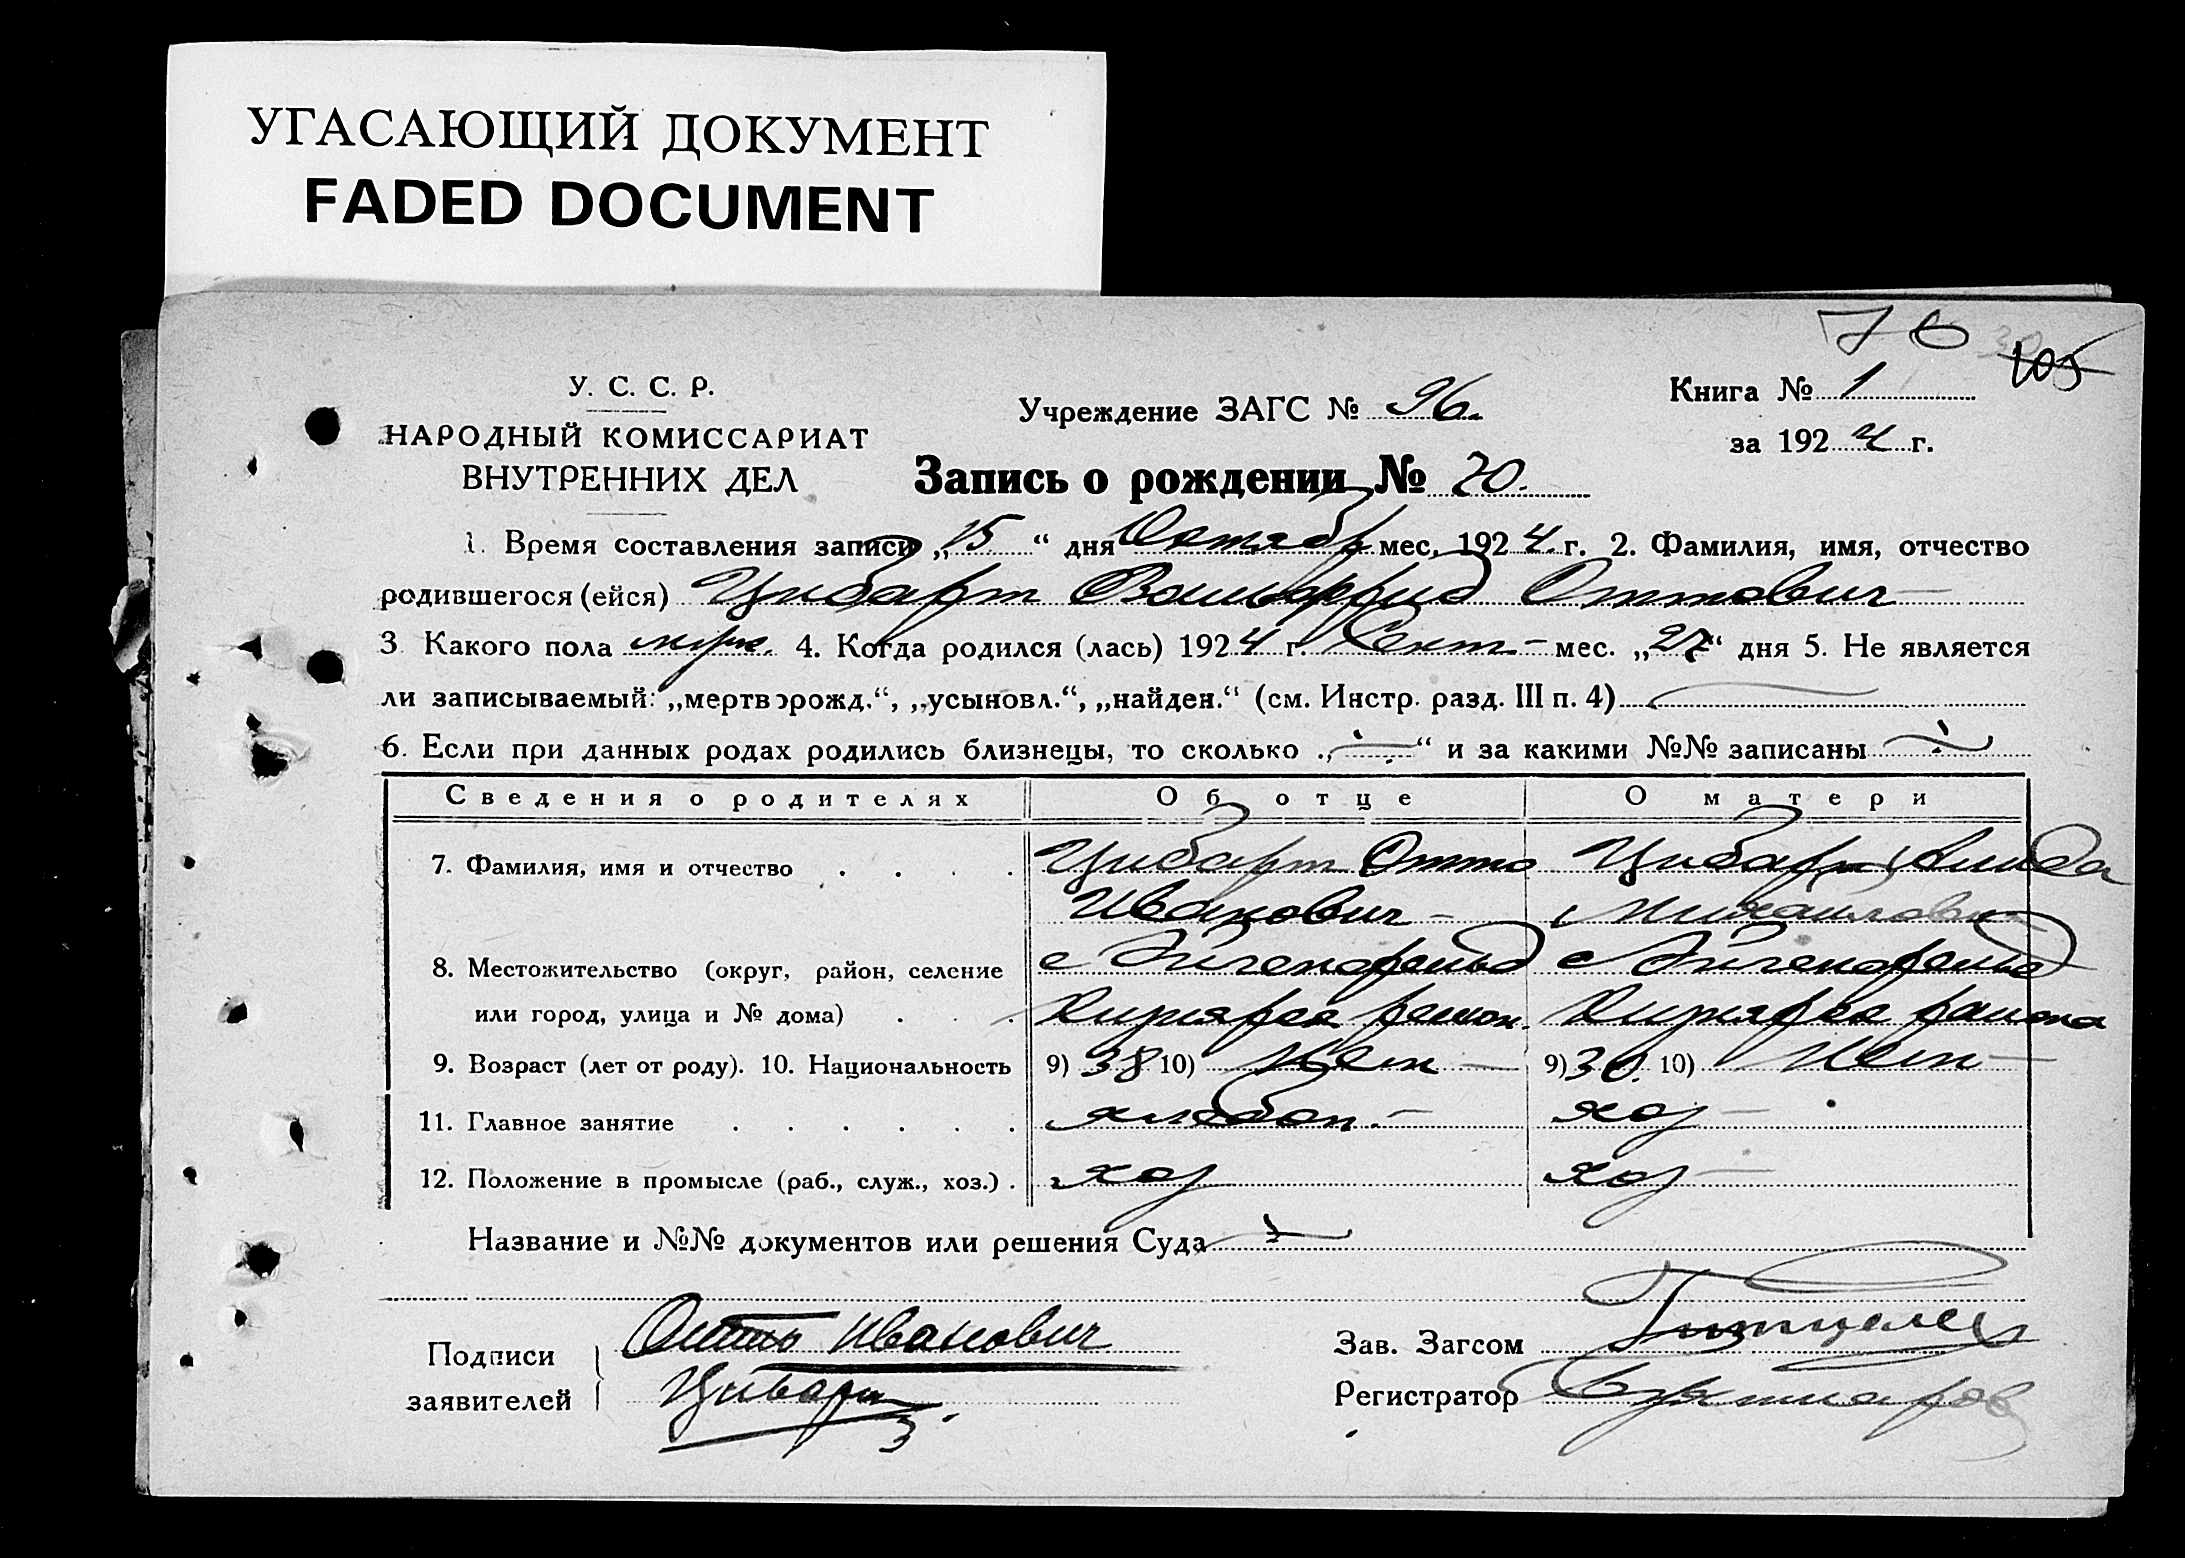 УГАСАЮЩИЙ ДОКУМЕНТ
FADED DOCUMENT
76
105
У. С. С. Р.
НАРОДНЫЙ КОМИССАРИАТ
ВНУТРЕННИХ ДЕЛ
Учреждение ЗАГС № 96.
Книга № 1
за 1924 г.
Запись о рождении № 70.
1. Время составления записи „15“ дня Октябр мес. 1924 г. 2. Фамилия, имя, отчество
родившегося (ейся) Цибарт Оттович
3 Какого пола муж. 4. Когда родился (лась) 1924 г. Сент мес. „27“ дня 5. Не является
ли записываемый: „мертворожд.“, „усыновл.“, „найден.“ (см. Инстр. разд. III п. 4)
6. Если при данных родах родились близнецы, то сколько „ “ и за какими №№ записаны
Сведения о родителях Об отце О матери
7. Фамилия, имя и отчество Цибарт Отто Цибарт
Иванович Михайловн
8. Местожительство (округ, район, селение с Эйгенфельд с Эйгенфельд
или город, улица и № дома) район. района
9. Возраст (лет от роду). 10. Национальность 9) 38 10) Нем 9) 30. 10) Нем
11. Главное занятие хлебоп. хоз
12. Положение в промысле (раб., служ., хоз.) хоз хоз
Название и №№ документов или решения Суда
Подписи Отто Иванович
заявителей Цибарт
Зав. Загсом
Регистратор